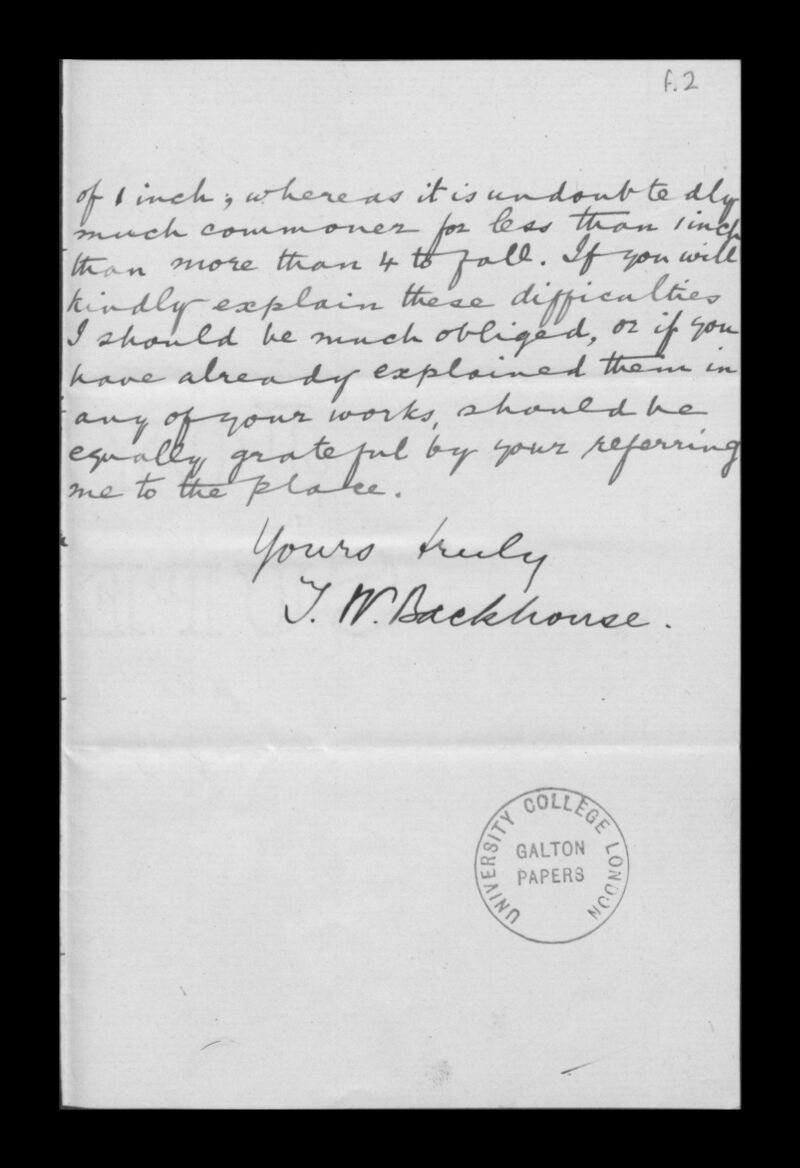 f.2
of 1 inch; whereas it is undoubtedly
much commoner for less than 1 inch
than more than 4 to fall. If you will
kindly explain these difficulties
I should be much obliged, or if you
have already explained them in
any of your works, should be
equally grateful by your referring
me to the place.
Yours truly
T. W. Backhouse.
UNIVERSITY COLLEGE LONDON
GALTON
PAPERS